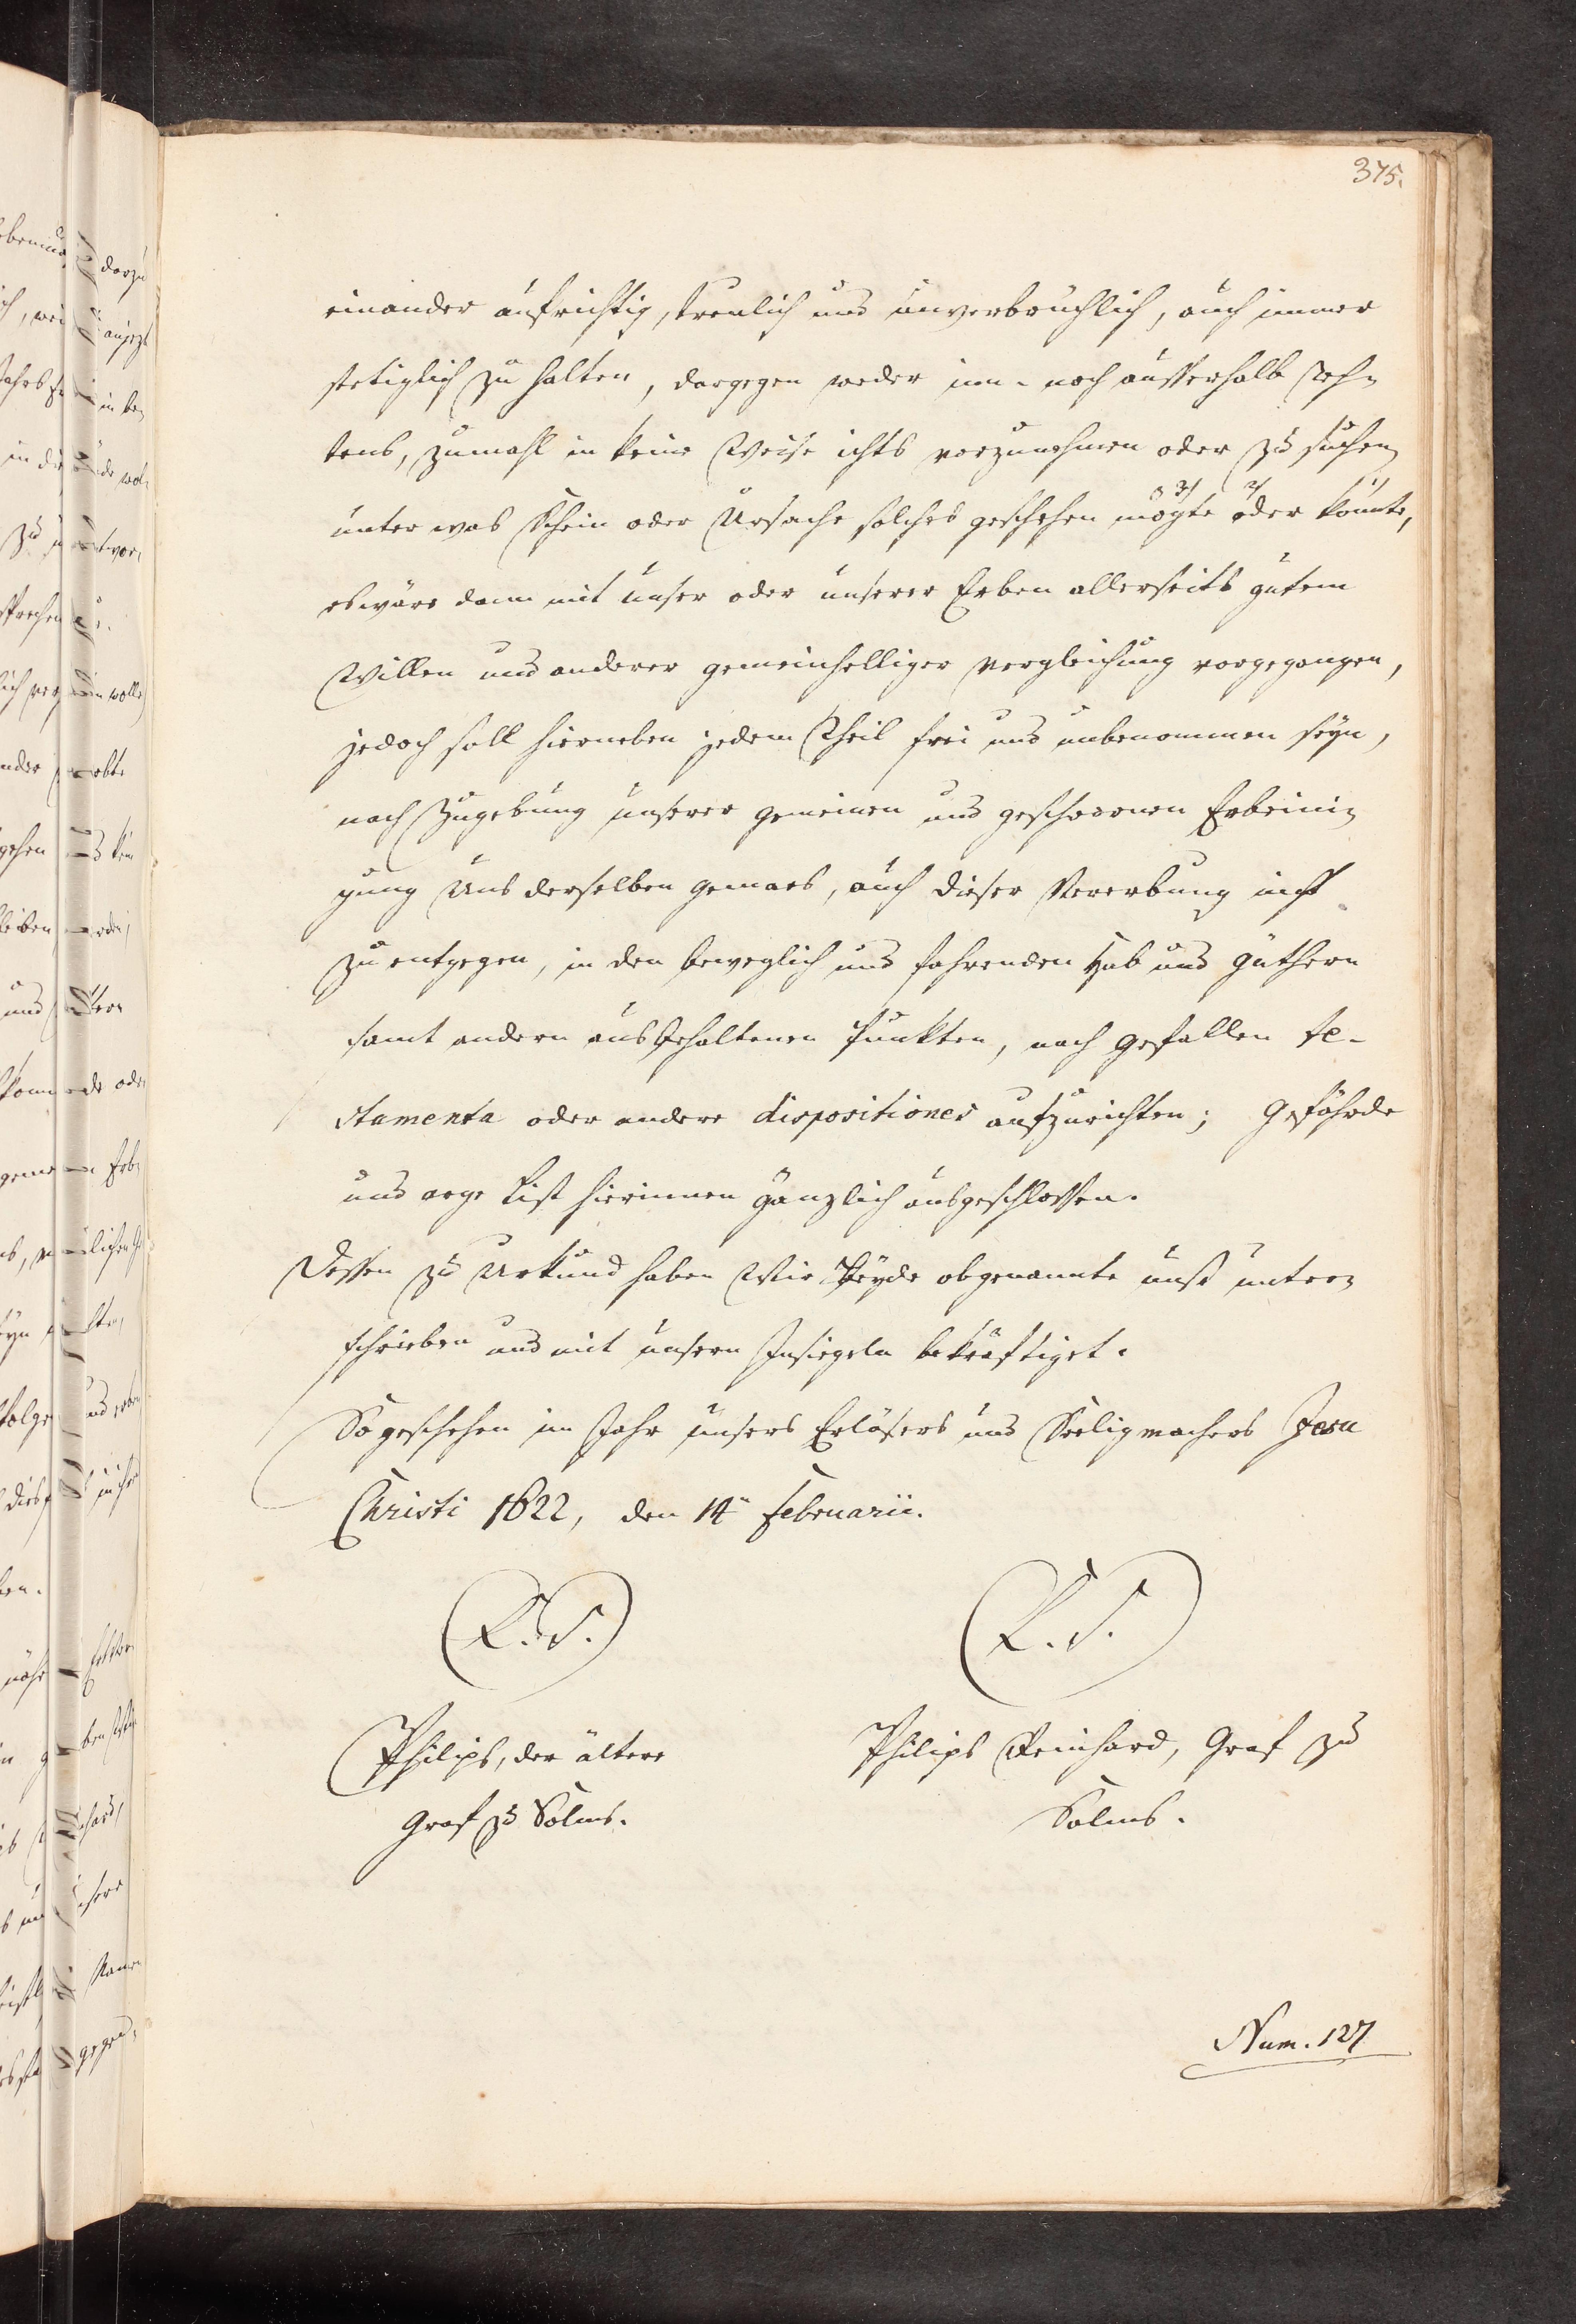 375.
einander aufrichtig, treulich und unverbrüchlich, auch immer
stetiglich zu halten, dargegen weder inn- noch ausserhalb Rech-
tens, zumahl in keine Weise ichts vorzunehmen oder zu suchen
3/ 2/ 1/
unter was Schein oder Ursache solches geschehen mögte oder könnte,
es wäre dann mit unser oder unserer Erben allerseits gutem
Willen und anderer gemeinhelliger Vergleichung vorgegangen,
jedoch soll hierneben jedem Theil frei und unbenommen seyn,
nach Zugebung unserer gemeinen und geschwornen Erbeini-
gung Uns derselben gemaes, auch dieser Vererbung nicht
zu entgegen, in den beweglich und fahrenden Hab und Güthern
samt andern ausbehaltenen Punkten, nach Gefallen te-
stamenta oder andere dispositiones aufzurichten; Gefährde
und arge List hierinnen gänzlich ausgeschlossen.
Dessen zu Urkund haben Wir Beyde obgenannte unß unter-
schrieben und mit unsern Insiegeln bekräftiget.
So geschehen im Jahr unsers Erlösers und Seeligmachers Jesu
Christi 1622, den 14n Februarii.
(L. S.) (L. S.)
Philips, der ältere Philips Reinhard, Graf zu
Graf zu Solms. Solms.
Num. 127